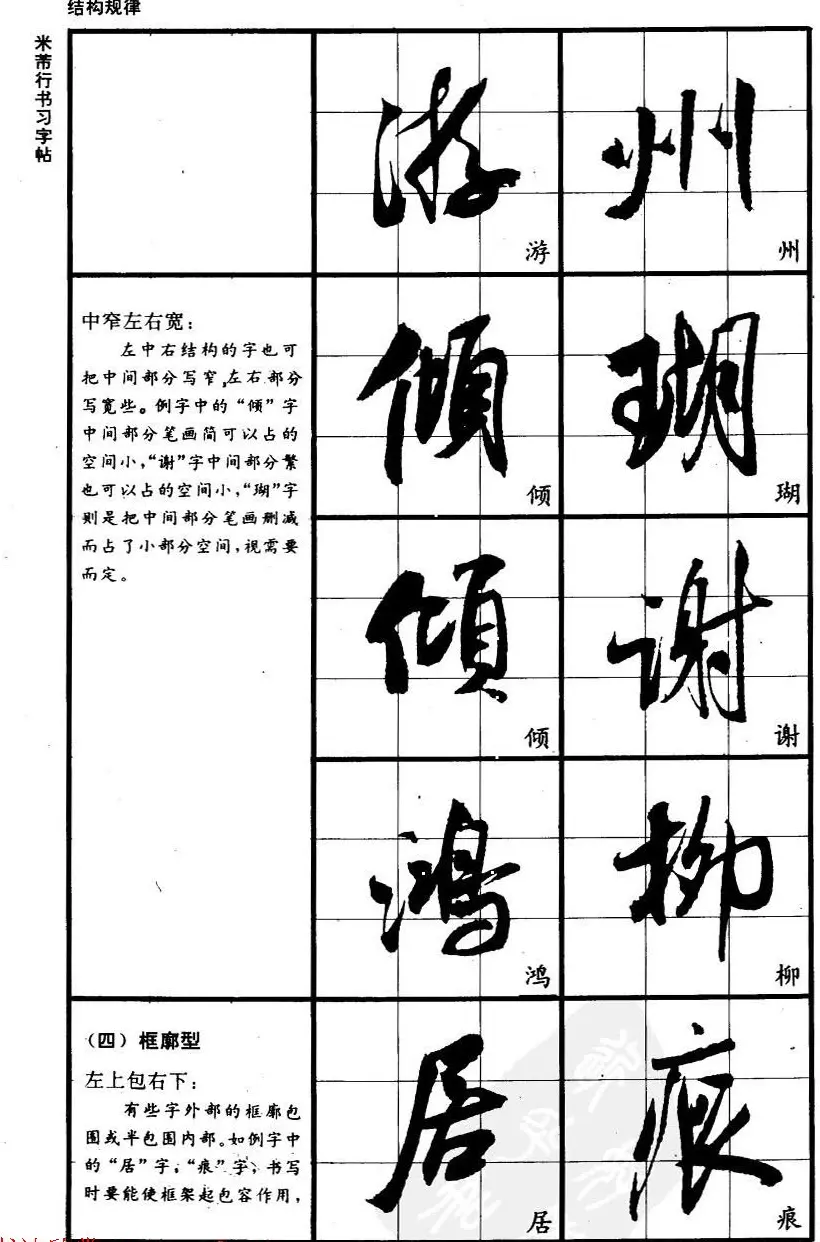 结构规律
米芾行书习字帖
州
游
中窄左右宽：
左中右结构的字也可
把中间部分写窄，左右部分
写宽些。例字中的“倾”字
中间部分笔画简可以占的
空间小，“谢”字中间部分繁
也可以占的空间小，“瑚”字
则是把中间部分笔画删减
而占了小部分空间，视需要
而定。
瑚
倾
谢
倾
柳
鸿
（四）框廓型
左上包右下：
有些字外部的框廓包
围或半包围内部。如例字中
的“居”字，“痕”字，书写
时要能使框架起包容作用，
痕
居